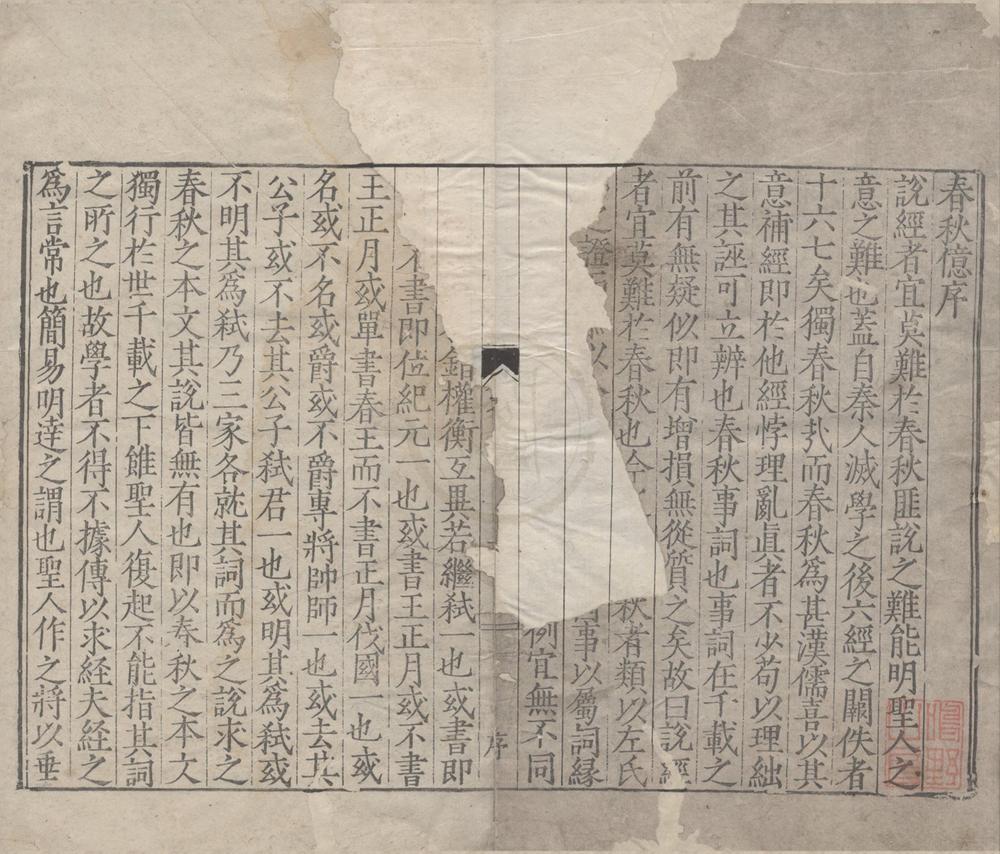 春秋億序
說經者宜莫難於春秋匪說之難能明聖人之
意之難也蓋自秦人滅學之後六經之闕佚者
十六七矣獨春秋尤而春秋為甚漢儒喜以其
意補經即於他經悖理亂真者不少苟以理絀
之其誣可立辨也春秋事詞也事詞在千載之
前有無疑似即有增損無從質之矣故曰說經
者宜莫難於春秋也今 秋者類以左氏
證 以 事以屬詞緣
例宜無不同
序
權衡互異若繼弒一也或書即
不書即位紀元一也或書王正月或不書
王正月或單書春王而不書正月伐國一也或
名或不名或爵或不爵專將帥師一也或去其
公子或不去其公子弒君一也或明其為弒或
不明其為弒乃三家各就其詞而為之說求之
春秋之本文其說皆無有也即以春秋之本文
獨行於世千載之下雖聖人復起不能指其詞
之所之也故學者不得不據傳以求経夫経之
為言常也簡易明達之謂也聖人作之將以垂